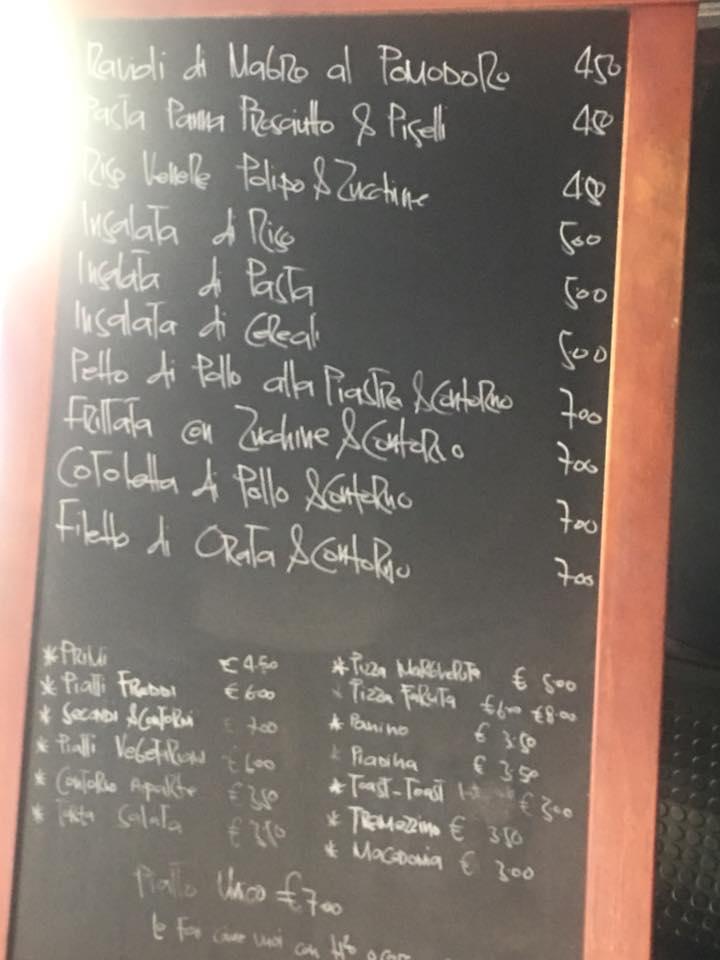 Ravioli di Magro al Pomodoro 450
Pasta Panna Prosciutto & Piselli 450
Riso Venere Polipo & Zucchine 450
Insalata di Riso 500
Insalata di Pasta 500
Insalata di Cereali 500
Petto di Pollo alla Piastra & Contorno 700
Frittata con Zucchine & Contorno 700
Cotoletta di Pollo & Contorno 700
Filetto di Orata & Contorno 700
* Primi € 4.50
* Piatti Freddi € 600
* Secondi & Contorni € 700
* Piatti Vegetariani € 600
* Contorno Aparte € 350
* Torta Salata € 350
* Pizza Margherita € 500
* Pizza Farcita € 600 € 8.00
* Panino € 3.50
* Piadina € 350
* Toast-Toast € 300
* Tramezzino € 350
* Macedonia € 300
Piatto Unico € 700
le Fai come vuoi con